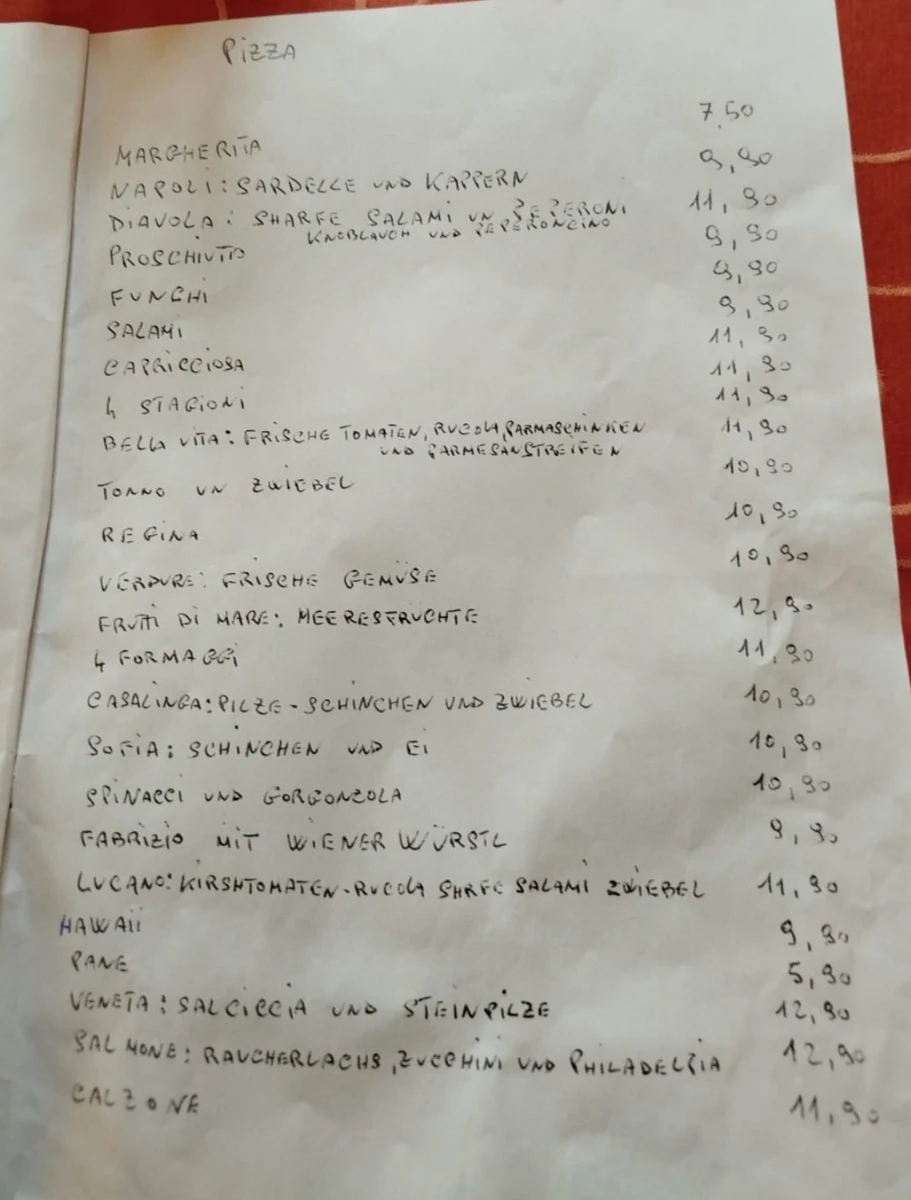 PiZZA
MARGHERITA 7.50
NAPOLI: SARDELLE UND KAPPERN 9,90
DIAVOLA: SHARFE SALAMI UN PEPERONI 11,90
KNOBLAUCH UND PEPERONCINO
PROSCHIUTTO 9,90
FUNGHI 9,90
SALAMI 9,90
CAPRICCIOSA 11,90
4 STAGIONI 11,90
11,90
BELLA VITA: FRISCHE TOMATEN, RUCOLA, PARMASCHINKEN 11,90
UND PARMESANSTREIFEN
TONNO UN ZWIEBEL 10,90
REGINA 10,90
VERDURE: FRISCHE GEMÜSE 10,90
FRUTTI DI MARE: MEERESFRUCHTE 12,90
4 FORMAGGI 11,90
CASALINGA: PILZE - SCHINCHEN UND ZWIEBEL 10,90
SOFIA: SCHINCHEN UND Ei 10,90
SPINACCI UND GORGONZOLA 10,90
FABRIZIO MIT WIENER WÜRSTL 9,90
LUCANO: KIRSHTOMATEN - RUCOLA SHRFE SALAMI ZWIEBEL 11,90
HAWAII 9,90
PANE 5,90
VENETA: SALCICCIA UND STEINPILZE 12,90
SALMONE: RAUCHERLACHS, ZUCCHINI UND PHILADELPIA 12,90
CALZONE 11,90